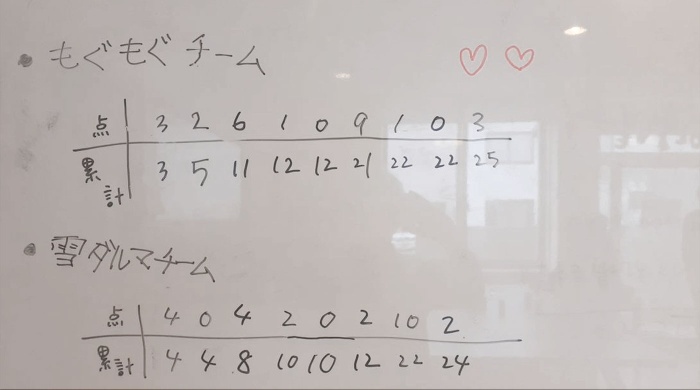 もぐもぐチーム
点 3 2 6 1 0 9 1 0 3
累計 3 5 11 12 12 21 22 22 25
雪ダルマチーム
点 4 0 4 2 0 2 10 2
累計 4 4 8 10 10 12 22 24